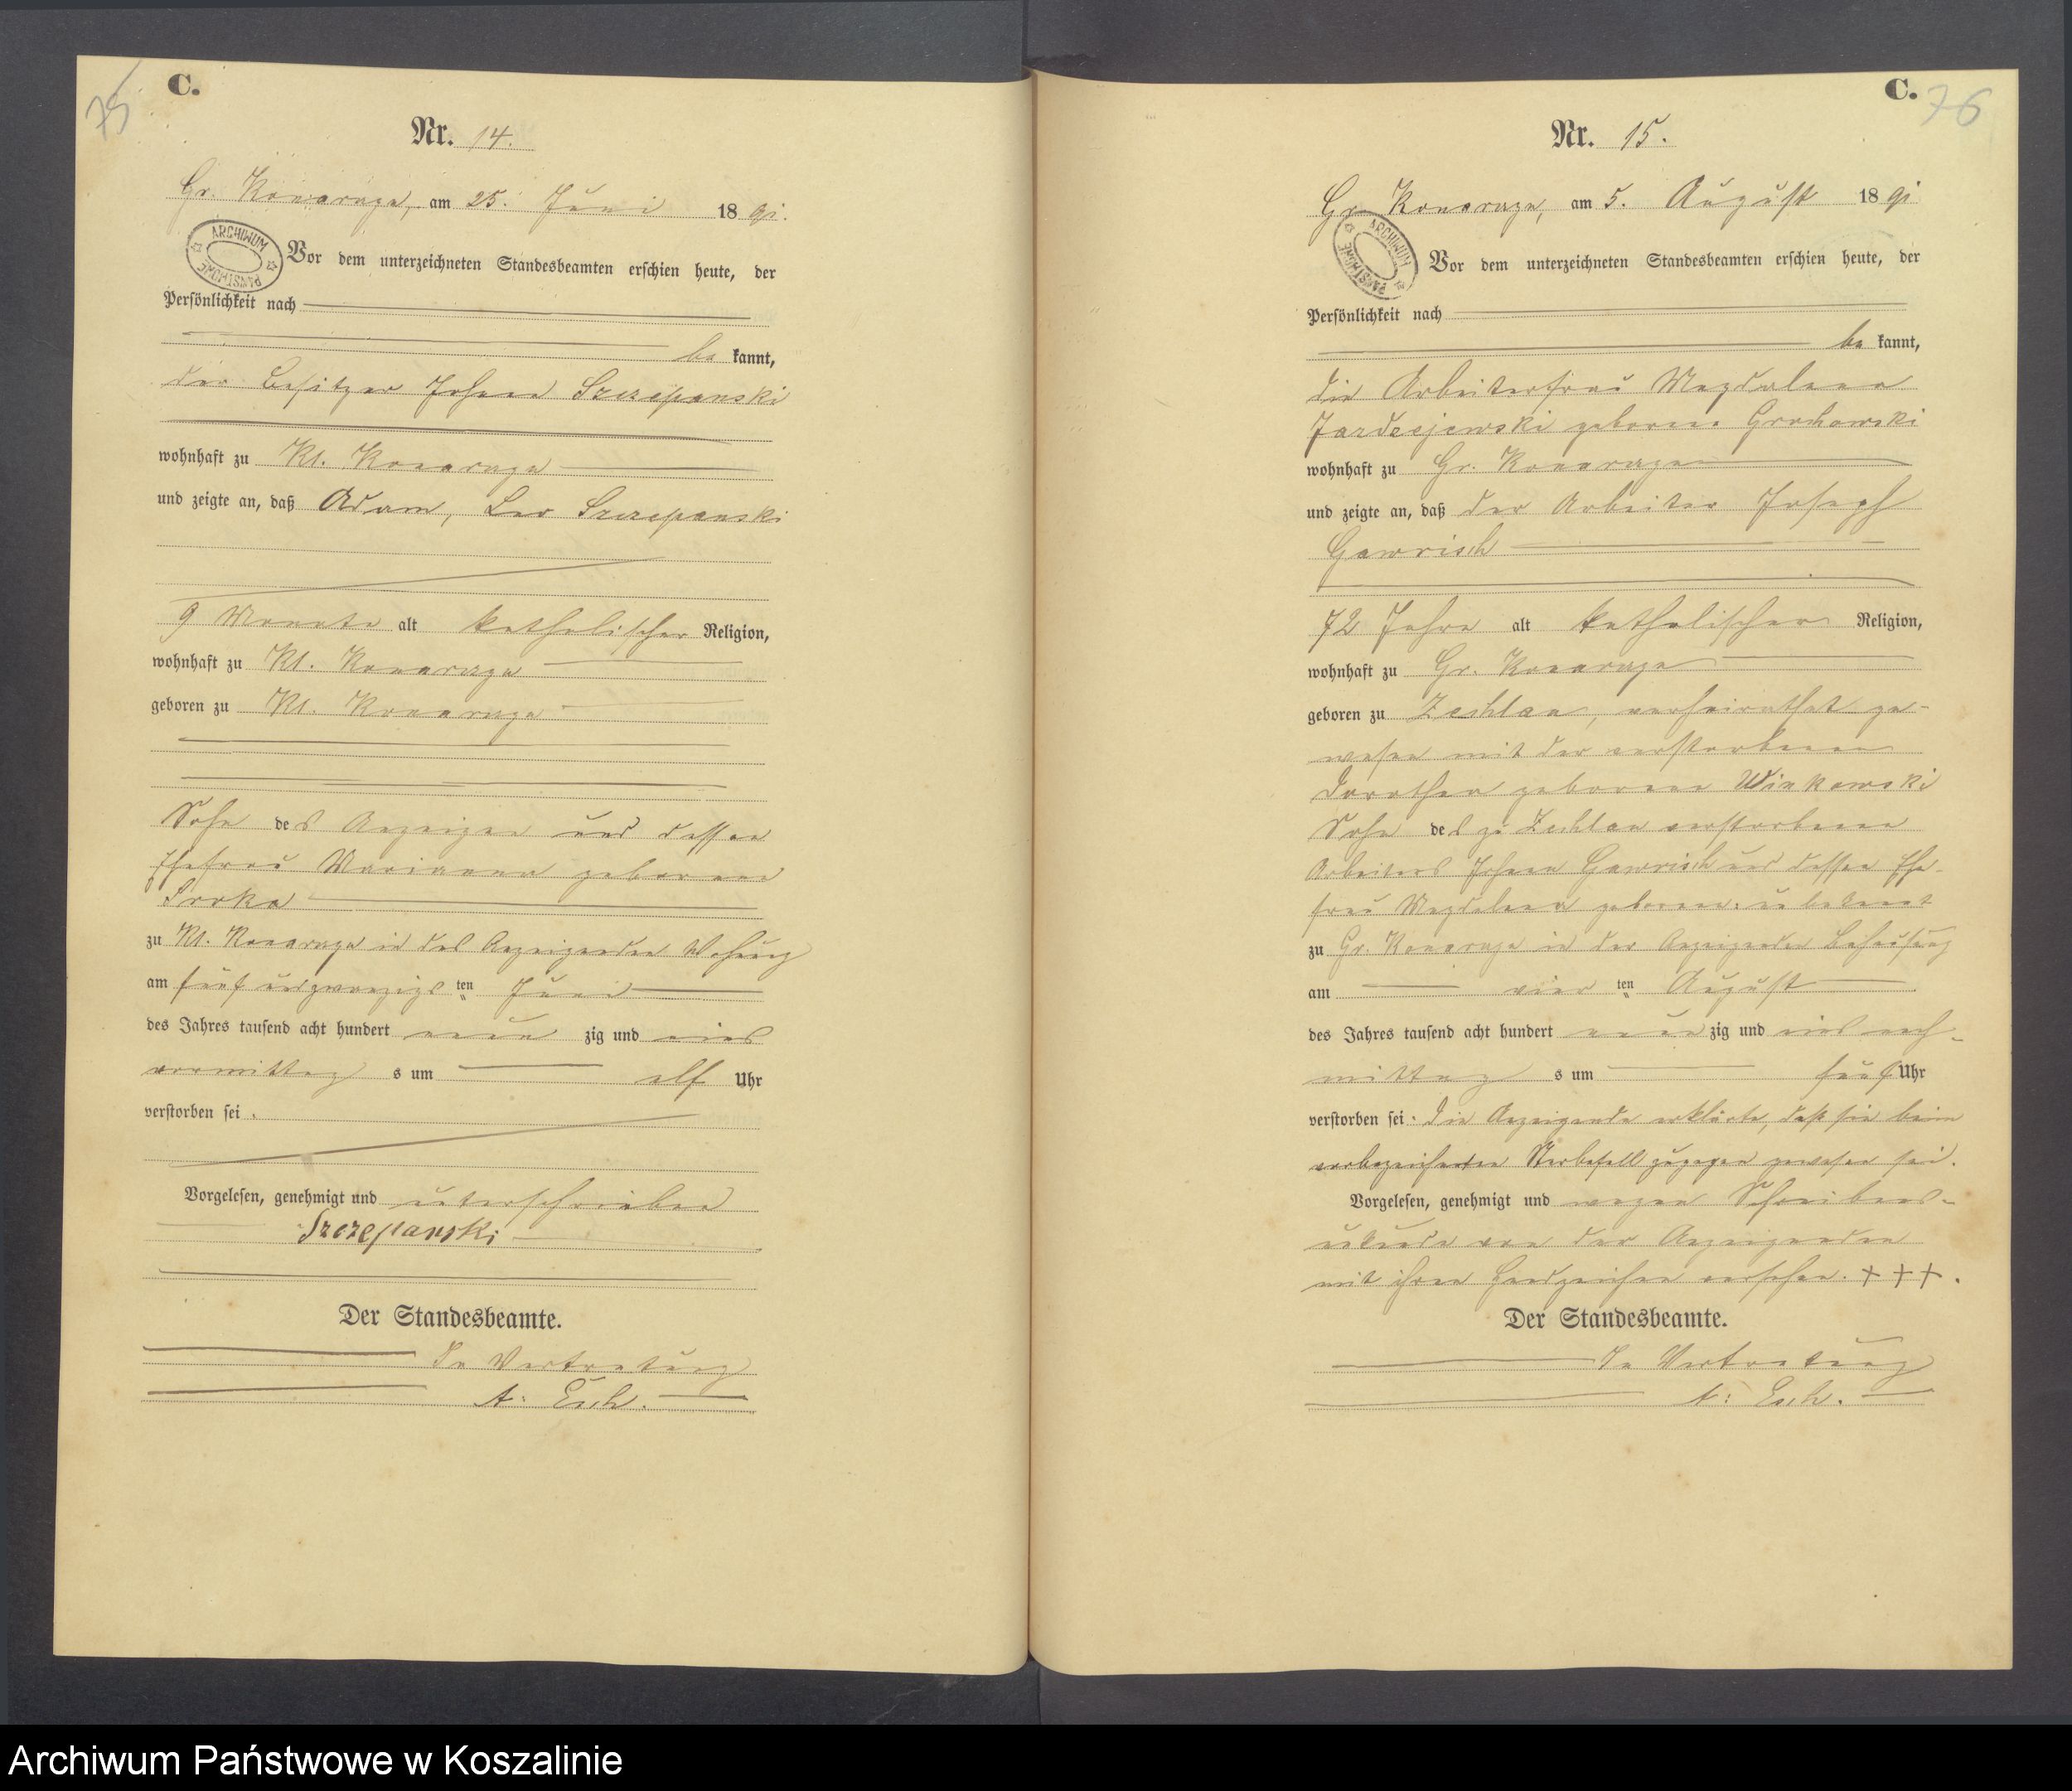 75
C.
Nr. 14.
Gr. Konarczyn, am 25. Juni 1891.
ARCHIWUM PAŃSTWOWE
Vor dem unterzeichneten Standesbeamten erschien heute, der
Persönlichkeit nach
be kannt,
der Besitzer Johann Szczepanski
wohnhaft zu Kl. Konarczyn
und zeigte an, daß Adam, Leo Szczepanski
9 Monate alt katholischer Religion,
wohnhaft zu Kl. Konarczyn
geboren zu Kl. Konarczyn
Sohn des Anzeigen und dessen
Ehefrau Marianna geborene
Sroka
zu Kl. Konarczyn in des Anzeigenden Wohnung
am fünf und zwanzigs ten Juni
des Jahres tausend acht hundert neun zig und eins
vormittag s um elf Uhr
verstorben sei.
Vorgelesen, genehmigt und unterschrieben
Szczepanski
Der Standesbeamte.
In Vertretung
A: Esch.
76
C.
Nr. 15.
Gr. Konarczyn, am 5. August 1891
ARCHIWUM PAŃSTWOWE
Vor dem unterzeichneten Standesbeamten erschien heute, der
Persönlichkeit nach
be kannt,
die Arbeiterfrau Magdalena
geborene Grochowski
wohnhaft zu Gr. Konarczyn
und zeigte an, daß der Arbeiter Joseph
Gawrisch
72 Jahre alt katholischer Religion,
wohnhaft zu Gr. Konarczyn
geboren zu Zechlau, verheirathet ge-
wesen mit der verstorbenen
Dorothea geborenen Winkowski
Sohn des zu Zechlau verstorbenen
Arbeiters Johann Gawrisch und dessen Ehe-
frau Magdalena geborene: unbekannt
zu Gr. Konarczyn in der Anzeigenden Behausung
am vier ten August
des Jahres tausend acht hundert neun zig und eins nach-
mittag s um fünf Uhr
verstorben sei. Die Anzeigende erklärte, daß sie beim
vorbezeichneten Sterbefall zugegen gewesen sei.
Vorgelesen, genehmigt und wegen Schreibens-
unkunde von der Anzeigenden
mit ihren Handzeichen versehen. + + + .
Der Standesbeamte.
In Vertretung
A: Esch.
Archiwum Państwowe w Koszalinie